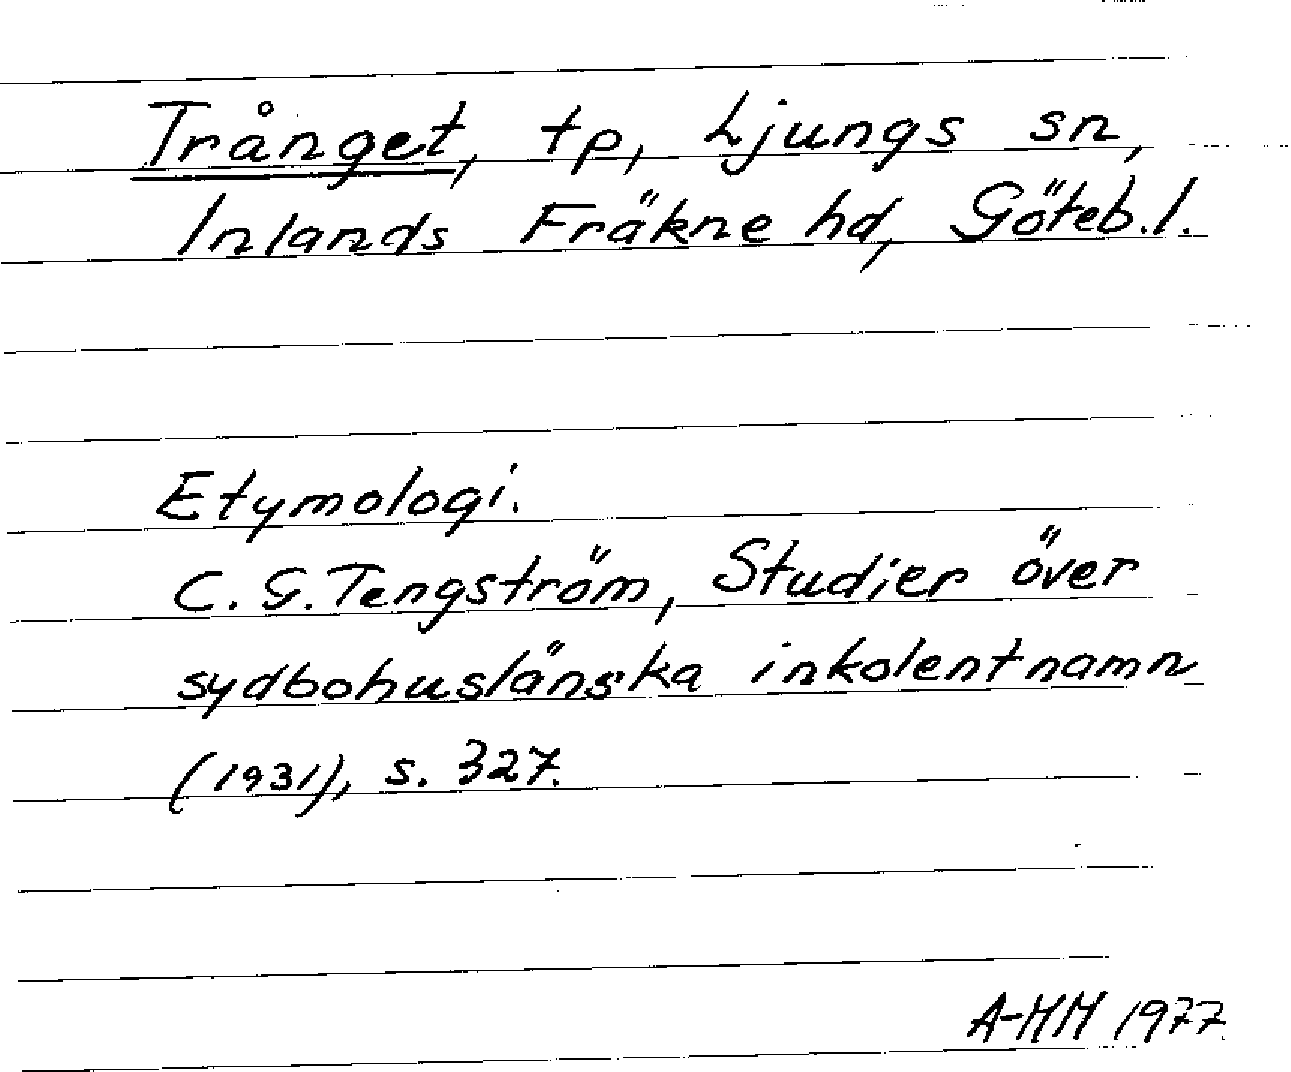 Trånget, tp, Ljungs sn,
Inlands Fräkne hd, Göteb.l.
Etymologi.
C. G. Tengström, Studier över
sydbohuslänska inkolentnamn
(1931), s. 327.
A-MM 1977